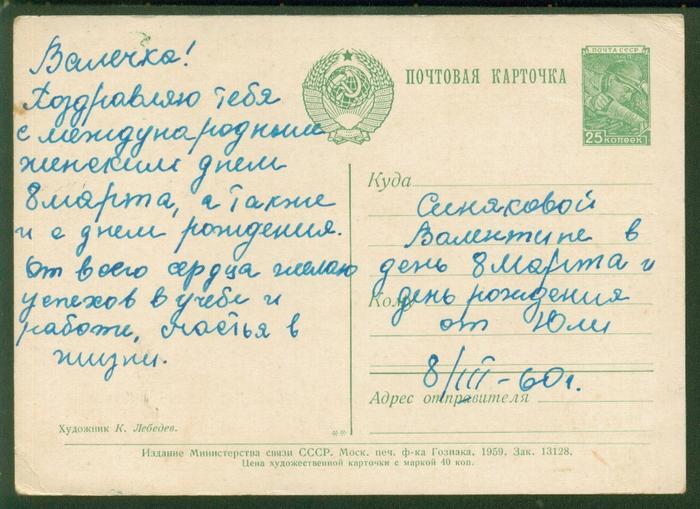 Валечка!
Поздравляю тебя
с международным
женским днем
8 марта, а также
и с днем рождения.
От всего сердца желаю
успехов в учебе и
работе, счастья в
жизни.
Художник К. Лебедев.
ПОЧТОВАЯ КАРТОЧКА
ПОЧТА СССР
25 КОПЕЕК
Куда
Синяковой
Валентине в
день 8 марта и
Кому
день рождения
от Юли
8/III-60г.
Адрес отправителя
Издание Министерства связи СССР. Моск. печ. ф-ка Гознака, 1959. Зак. 13128.
Цена художественной карточки с маркой 40 коп.